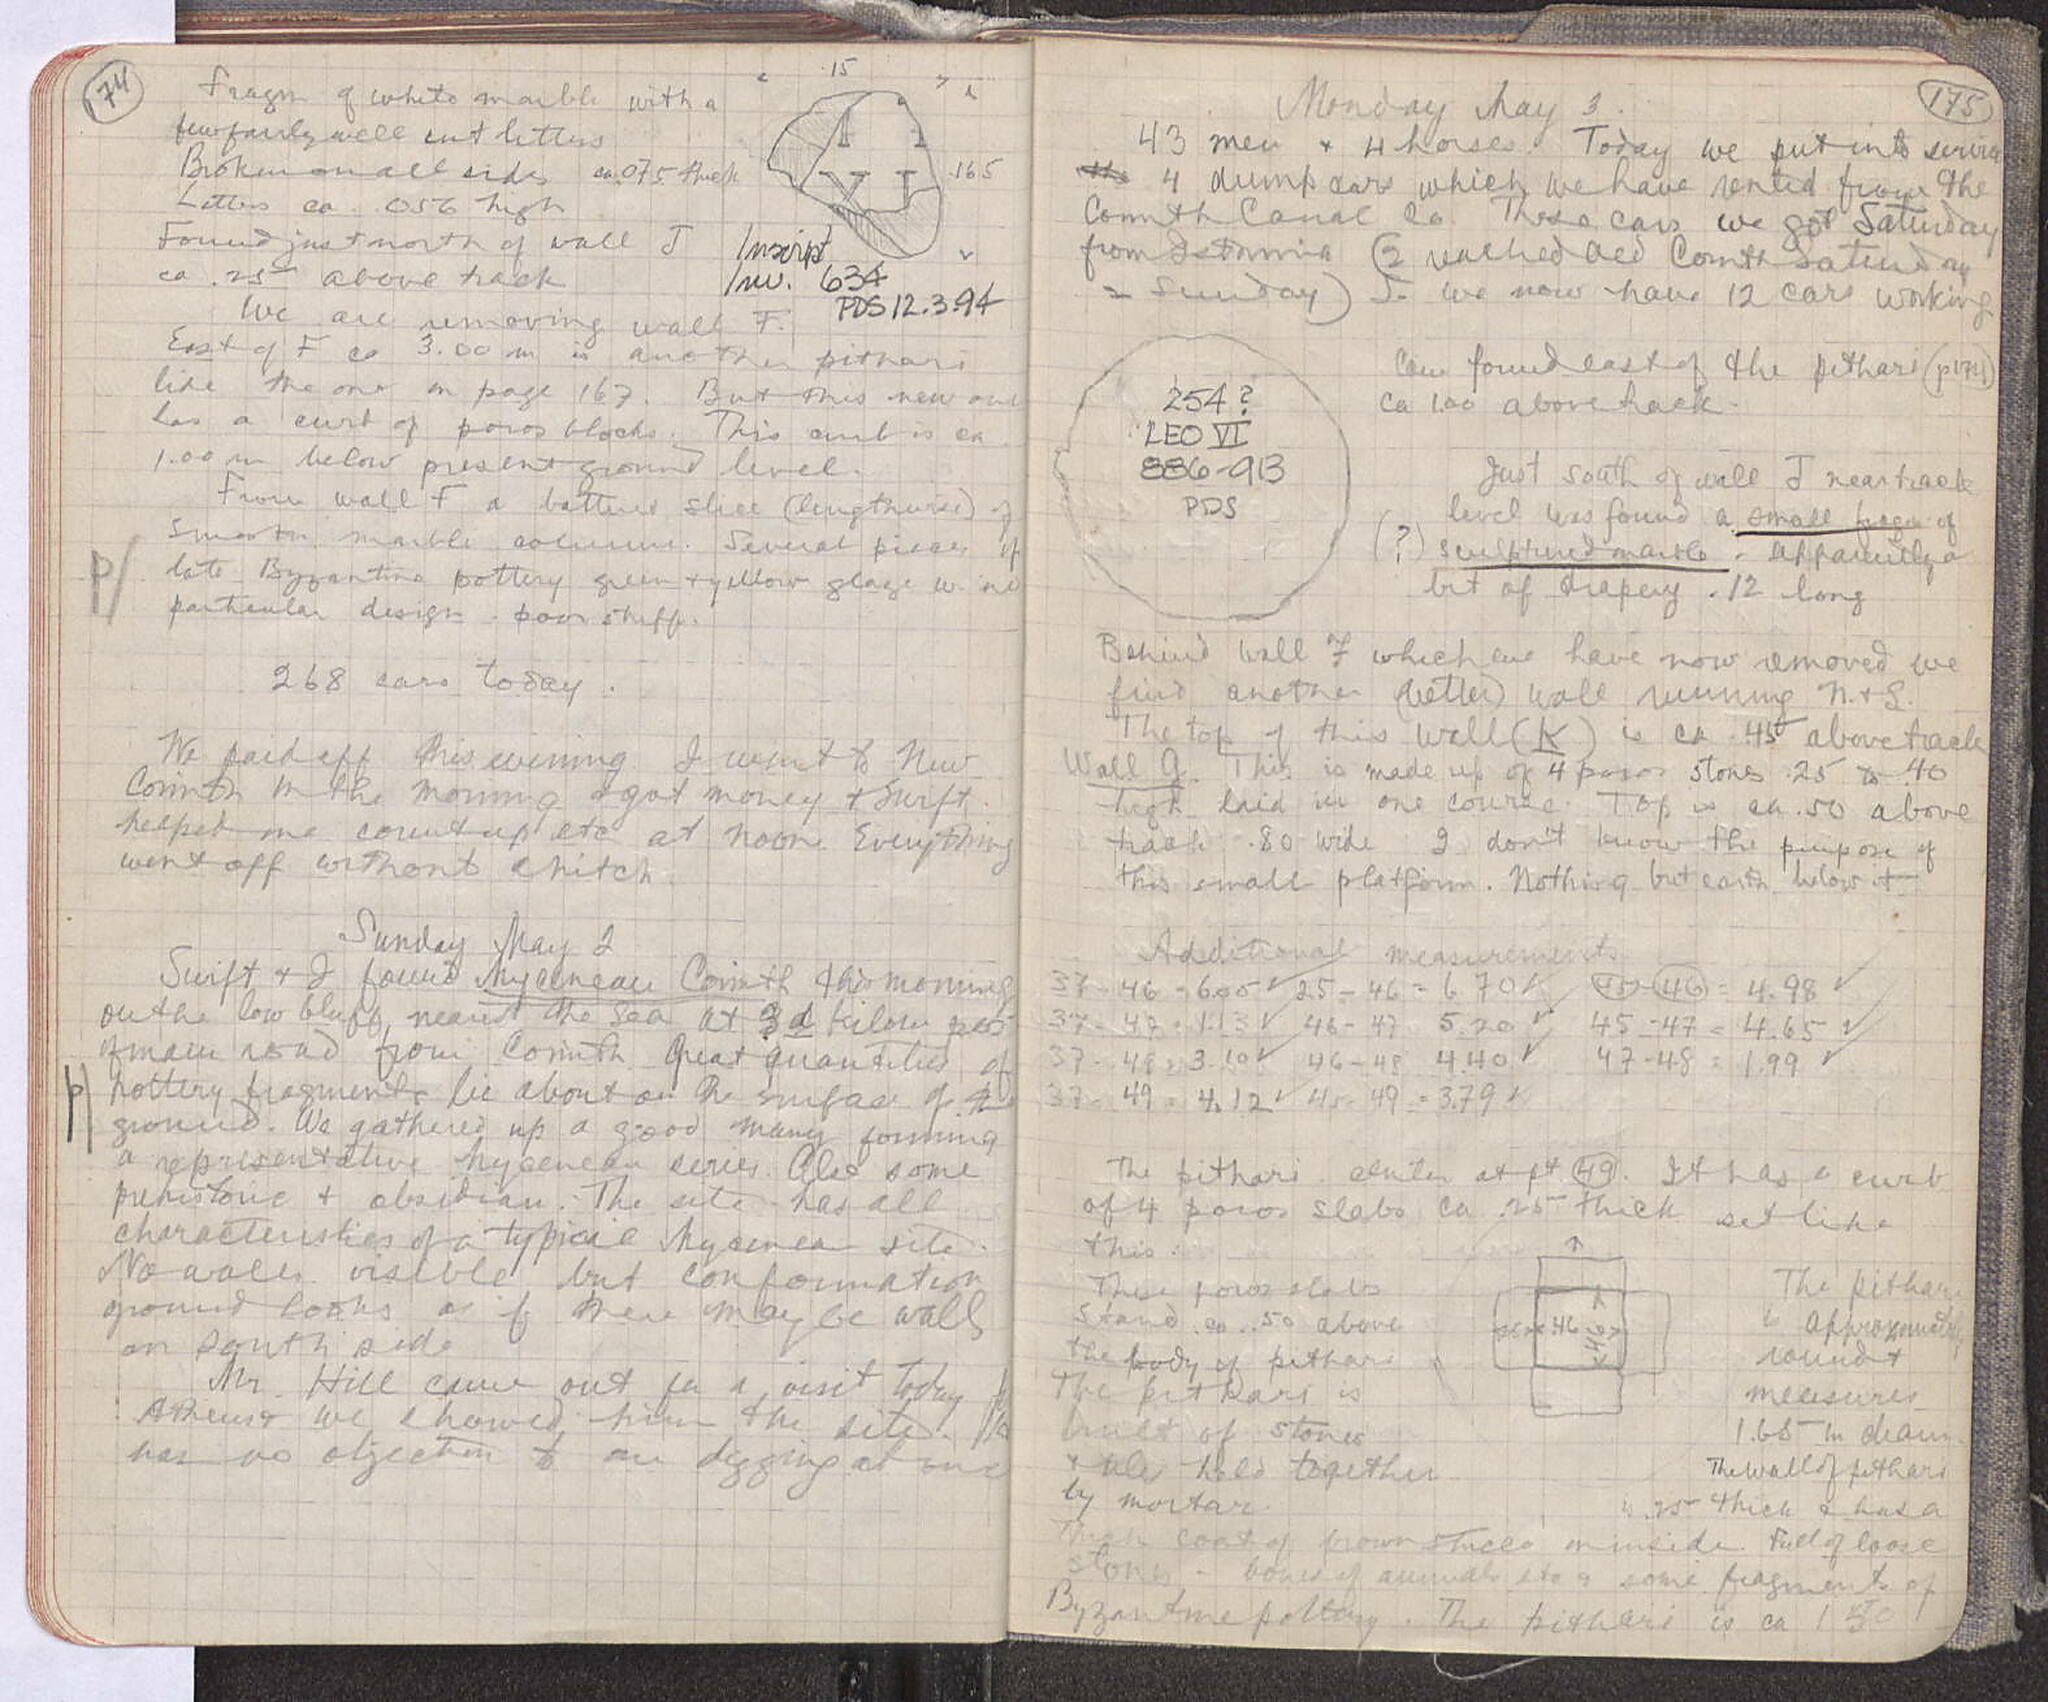 174
Fragm of white marble with a
few fairly well cut letters
Broken on all sides ca .075 thick
Letters ca. .056 high
Found just north of wall J
ca .25 above track
.15
.165
Inscript
Inv. 634
PDS 12.3.94
We are removing wall F.
East of F ca 3.00 m is another pithari
like the one on page 167. But this new one
has a curb of poros blocks. This curb is ca
1.00 m below present ground level.
From wall F a battered slice (lengthwise) of
smooth marble column. Several pieces of
p/
late Byzantine pottery green + yellow glaze w. no
particular design - poor stuff.
268 cars today.
We paid off this evening I went to New
Corinth in the morning & got money & Swift
helped me count up etc at noon. Everything
went off without a hitch.
Sunday May 2
Swift & I found Mycenean Corinth this morning
on the low bluff near the sea at 3d kilom post
of main road from Corinth Great quantities of
p/
pottery fragments lie about on the surface of the
ground. We gathered up a good many forming
a representative Mycenean series. Also some
prehistoric + obsidian. The site has all
characteristics of a typical Mycenean site.
No walls visible but conformation
ground looks as if there may be walls
on south side
Mr. Hill came out for a visit today
Athens & we showed him the site. He
has no objection to our digging at once
175
Monday May 3.
43 men & 4 horses. Today we put into service
4 dump cars which we have rented from the
Corinth Canal Co. These cars we got Saturday
from Isthmia (2 reached Old Corinth Saturday
2 Sunday) So we now have 12 cars working
254?
LEO VI
886-913
PDS
Coin found east of the pithari (p174)
ca 1.00 above track.
Just south of wall J near track
level was found a small fragm of
(?) sculptured marble. apparently a
bit of drapery .12 long
Behind Wall F which we have now removed we
find another (better) wall running N. & S.
The top of this Wall (K) is ca .45 above track
Wall G. This is made up of 4 poros stones .25 to .40
high laid in one course. Top is ca .50 above
track .80 wide I don't know the purpose of
this small platform. Nothing but earth below it
Additional measurements
37 - 46 = 6.05 ✓ 25 - 46 = 6.70 ✓ 45 - 46 = 4.98 ✓
37 - 47 = 1.13 ✓ 46 - 47 5.20 ✓ 45 - 47 = 4.65 ✓
37 - 48 = 3.10 ✓ 46 - 48 4.40 ✓ 47 - 48 = 1.99 ✓
37 - 49 = 4.12 ✓ 45 - 49 = 3.79 ✓
The pithari center at pt. 49. It has a curb
of 4 poros slabs ca .25 thick set like
this:
These poros slabs
stand ca .50 above
the body of pithari
The pithari is
built of stones
& tiles held together
by mortar.
.46
.46
The pithari
is approximately
round &
measures
1.65 in diam.
The wall of pithari
is .25 thick & has a
thick coat of brown stucco on inside. Full of loose
stones - bones of animals etc & some fragments of
Byzantine pottery. The pithari is ca 1.50